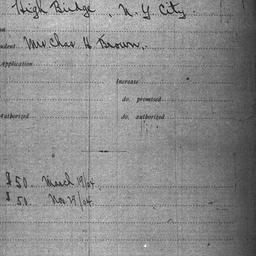 High Bridge, N.Y. City.
Mr Chas H Brown,
Application
Increase
do. promised
Authorized do. authorized
$50. March 19/04
$50. Nov 19/04